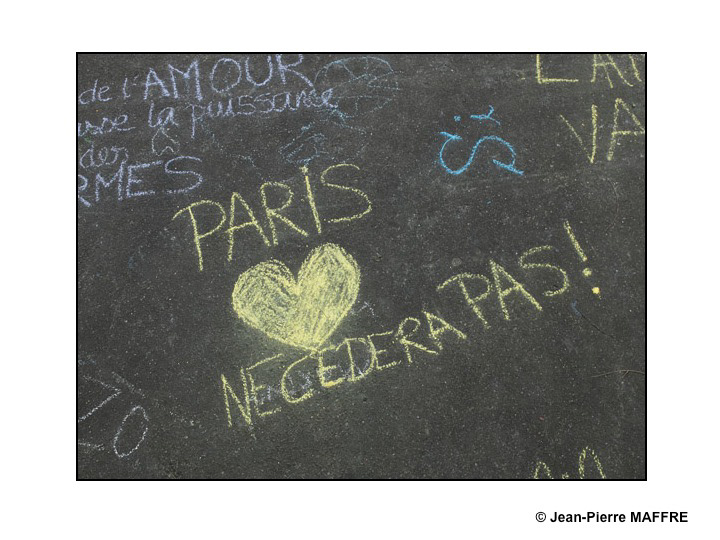 de l'AMOUR
la puissance
des
RMES
L'A
VA
PARIS
NE CEDERA PAS !
© Jean-Pierre MAFFRE